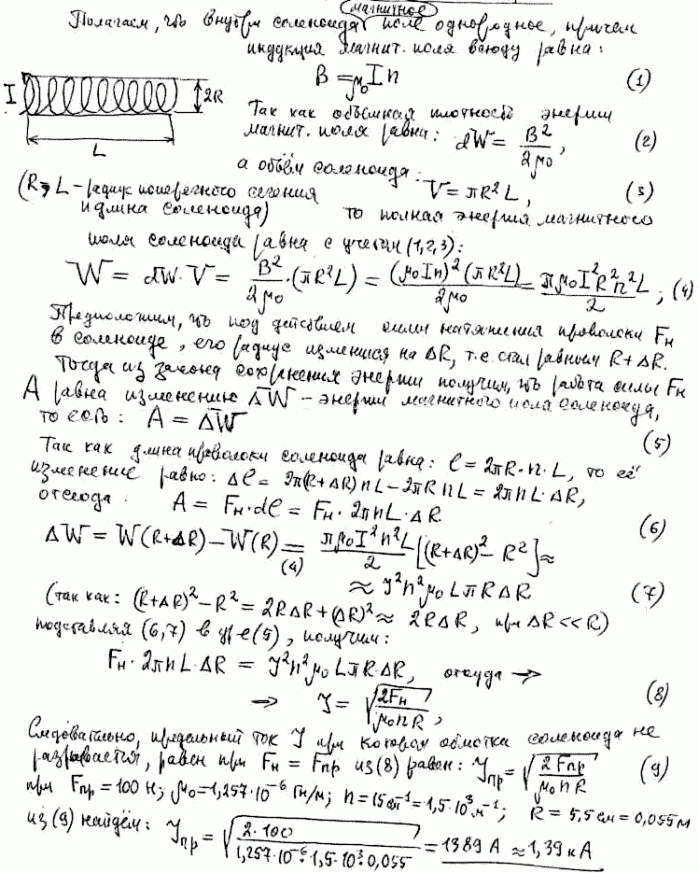 магнитное
Полагаем, что внутри соленоида поле однородное, причем
индукция магнит. поля всюду равна:
B = μ₀In (1)
I 2R
L
Так как объёмная плотность энергии
магнит. поля равна: dW = B²/2μ₀, (2)
а объём соленоида: V = πR²L, (3)
(R, L – радиус поперечного сечения
и длина соленоида) то полная энергия магнитного
поля соленоида равна с учетом (1,2,3):
W = dW·V = B²/2μ₀·(πR²L) = (μ₀In)²(πR²L)/2μ₀ = πμ₀I²R²n²L/2; (4)
Предположим, что под действием силы натяжения проволоки Fн
в соленоиде, его радиус изменился на ΔR, т.е. стал равным R+ΔR.
Тогда из закона сохранения энергии получим, что работа силы Fн
A равна изменению ΔW – энергии магнитного поля соленоида,
то есть: A = ΔW (5)
Так как длина проволоки соленоида равна: ℓ = 2πR·n·L, то её
изменение равно: Δℓ = 2π(R+ΔR)nL – 2πRnL = 2πnL·ΔR,
отсюда: A = Fн·dℓ = Fн·2πnL·ΔR (6)
ΔW = W(R+ΔR) – W(R) = (4) πμ₀I²n²L/2 [(R+ΔR)² – R²] ≈
≈ J²n²μ₀LπRΔR (7)
(так как: (R+ΔR)² – R² = 2RΔR + (ΔR)² ≈ 2RΔR, при ΔR << R)
подставляя (6,7) в ур-е(5), получим:
Fн·2πnL·ΔR = J²n²μ₀LπR·ΔR, откуда →
→ J = √(2Fн/μ₀nR), (8)
Следовательно, предельный ток J при котором обмотка соленоида не
разрывается, равен при Fн = Fпр из(8) равен: Jпр = √(2Fпр/μ₀nR) (9)
при Fпр = 100 Н; μ₀ = 1,257·10⁻⁶ Гн/м; n = 15см⁻¹ = 1,5·10³м⁻¹; R = 5,5см = 0,055м
из (9) найдём: Jпр = √(2·100/1,257·10⁻⁶·1,5·10³·0,055) = 1389 А ≈ 1,39 кА